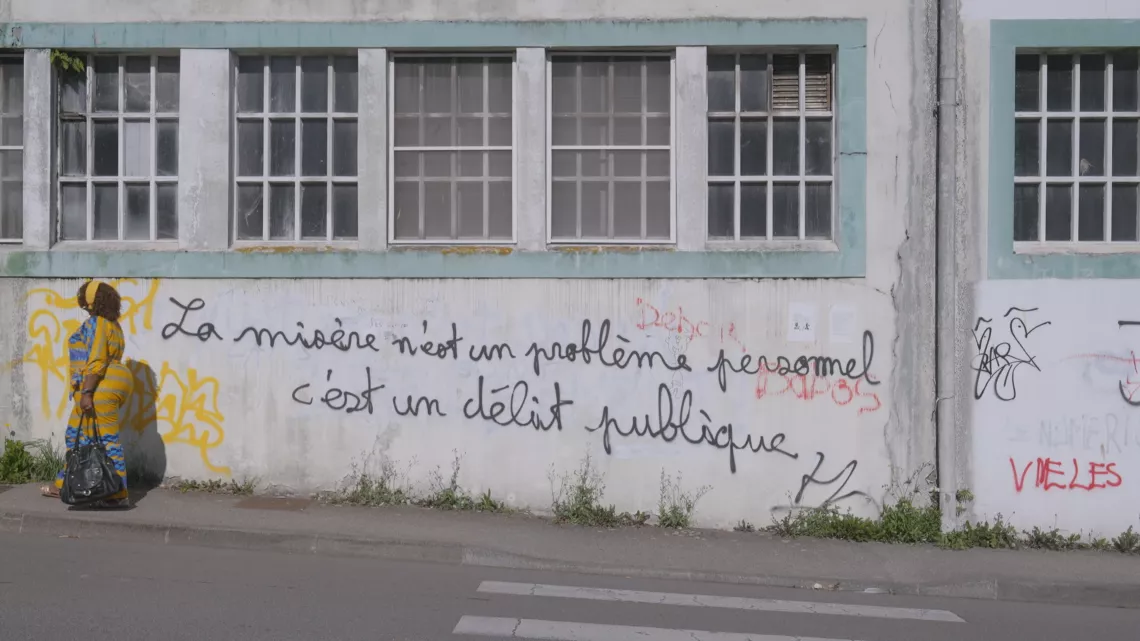 La misère n'est un problème personnel
c'est un délit publique
VIELES